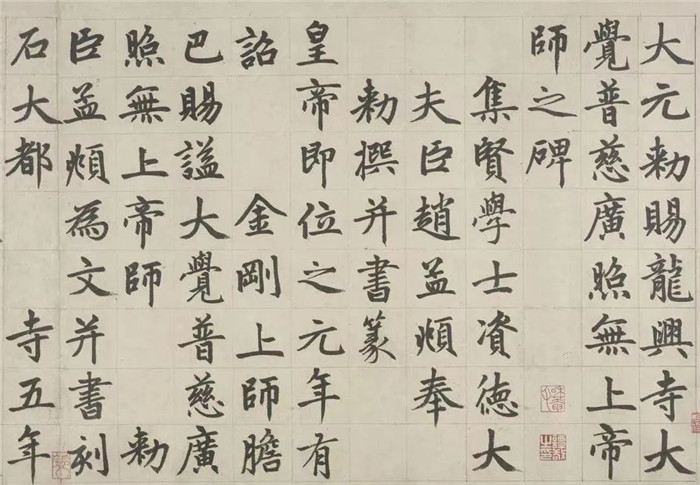 大元敕賜龍興寺大
覺普慈廣照無上帝
師之碑
集賢學士資德大
夫臣趙孟頫奉
敕撰并書篆
皇帝即位之元年有
詔金剛上師膽
巴賜謚大覺普慈廣
照無上帝師敕
臣孟頫為文并書刻
石大都寺五年